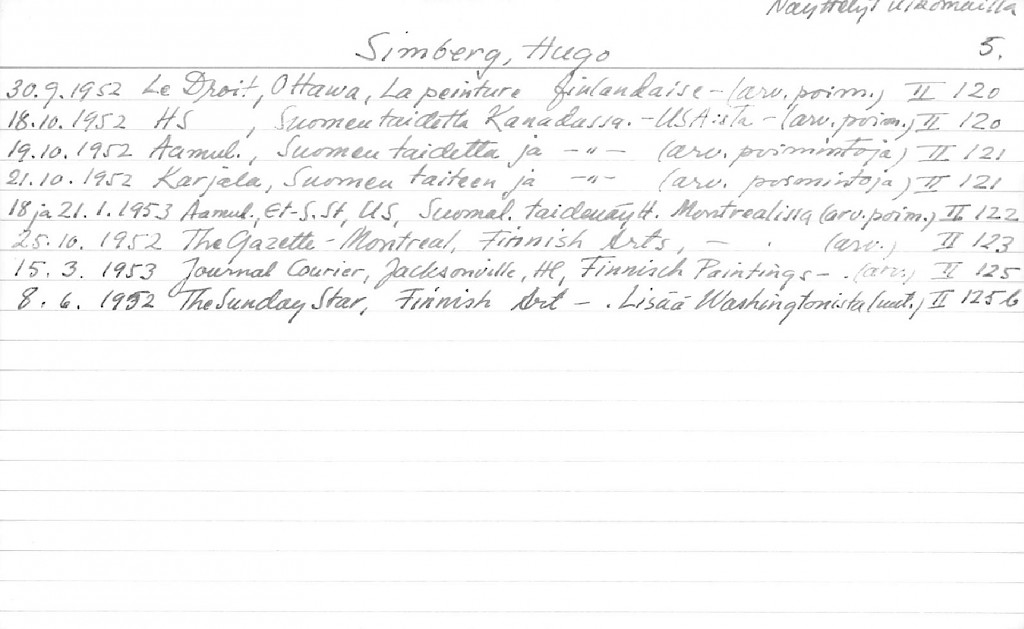 Näyttelyt ulkomailla
Simberg, Hugo 5.
30.9.1952 Le Droit, Ottawa, La peinture finlandaise - (arv. poim.) II 120
18.10.1952 HS , Suomen taidetta Kanadassa. - USA:sta - (arv. poim.) II 120
19.10.1952 Aamul., Suomen taidetta ja -"- (arv. poimintoja) II 121
21.10.1952 Karjala, Suomen taiteen ja -"- (arv. poimintoja) II 121
18 ja 21.1.1953 Aamul., Et-S.St, US, Suomal. taidenäytt. Montrealissa (arv. poim.) II 122
25.10.1952 The Gazette - Montreal, Finnish Arts, - . (arv.) II 123
15.3.1953 Journal Courier, Jacksonville, Finnisch Paintings - . (arv.) II 125
8.6.1952 The Sunday Star, Finnish Art - . Lisää Washingtonista (uut.) II 125 b